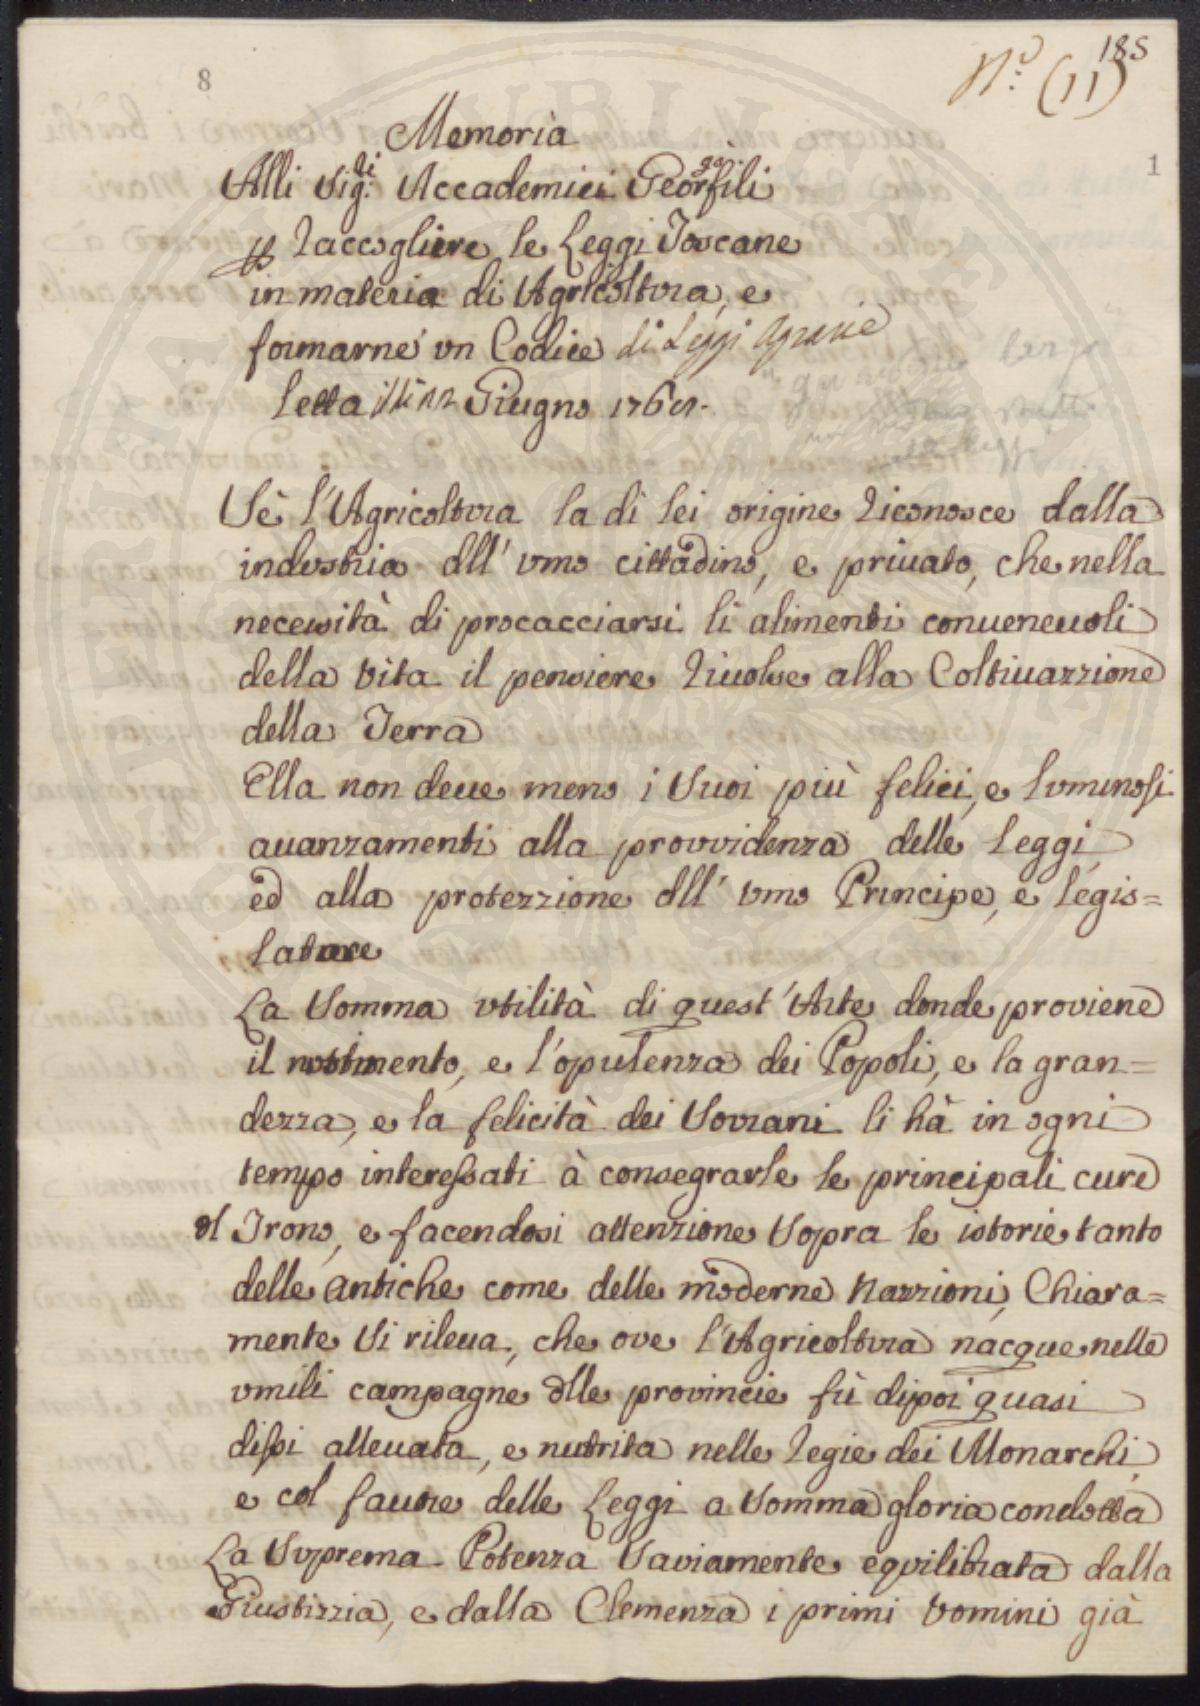 8
185
N.º (11)
1
Memoria
Alli Sig.ri Accademici Georgofili
Raccogliere le Leggi Toscane
in materia di Agricoltura, e
formarne un Codice di Leggi Agrarie
Letta Giugno 176
Se l'Agricoltura la di lei origine riconosce dalla
industria dll' vmo cittadino, e priuato, che nella
necessità di procacciarsi li alimenti conueneuoli
della vita il pensiere riuolse alla Coltiuazzione
della Terra
Ella non deue meno i Suoi più felici, e luminosi
auanzamenti alla provvidenza delle Leggi
ed alla protezzione dll' vmo Principe, e legis=
latore
La Somma vtilità di quest'Arte donde proviene
il nostrimento, e l'opulenza dei Popoli, e la gran=
dezza, e la felicità dei Sovrani li hà in ogni
tempo interessati à consegrarle le principali cure
dl Trono, e facendosi attenzione Sopra le istorie tanto
delle antiche come delle moderne Nazzioni, Chiara=
mente Si rileua, che ove l'Agricoltura nacque nelle
vmili campagne dlle provincie fù dipoi quasi
dissi alleuata, e nutrita nelle Regie dei Monarchi,
e col fauore delle Leggi a Somma gloria condotta
La Suprema Potenza Saviamente equilibrata dalla
Giustizzia, e dalla Clemenza i primi vomini già